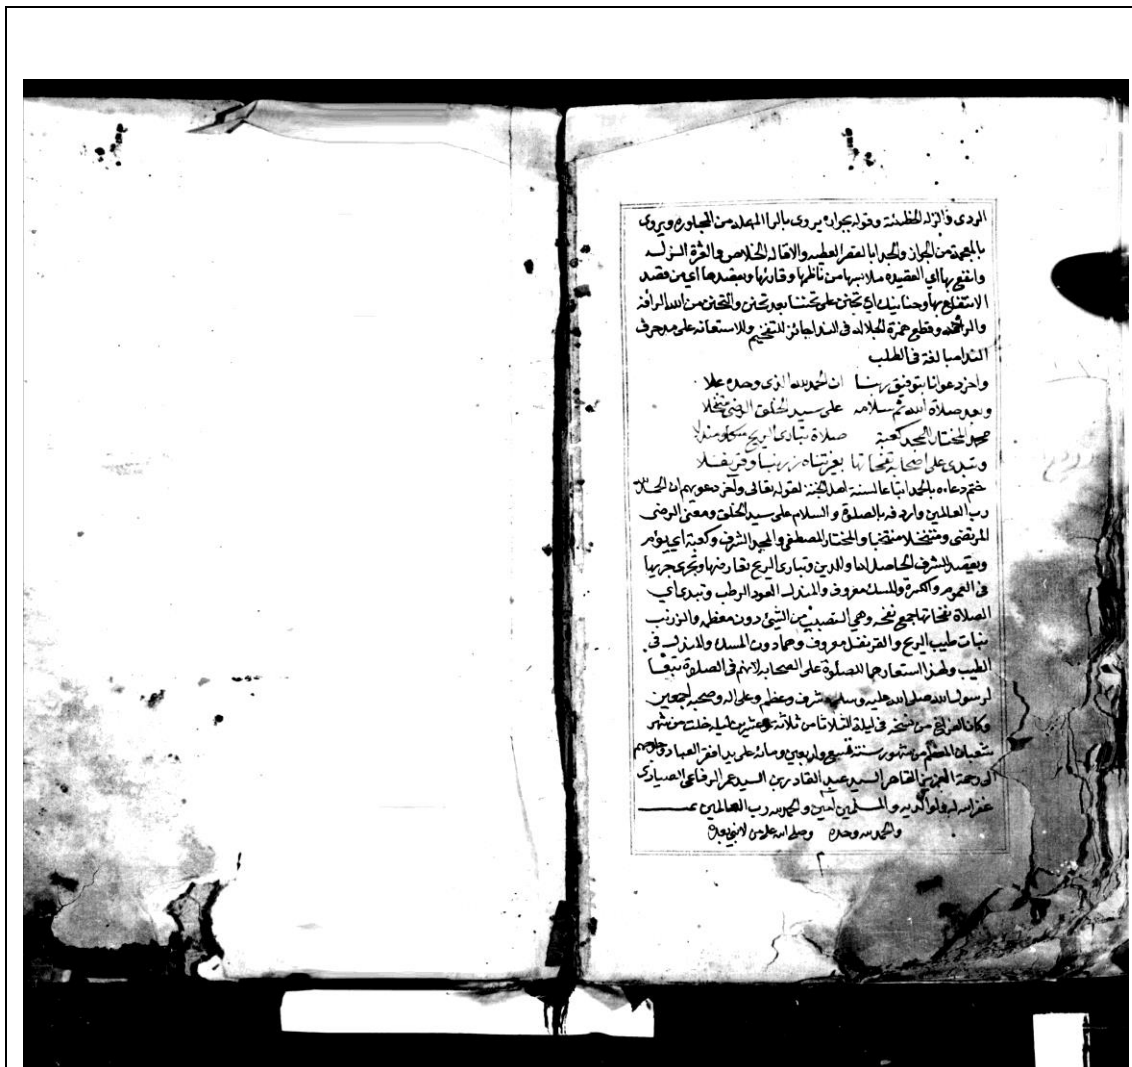 الردى والزلة الخطيئة وقوله بجواره يروى بالرا المهملة من المجاوره ويروى
بالمعجمة من الجواز والجدا بالقصر العطيه والاقاله الخلاص والعثرة الزلـه
وانفع بها اي العقيده ملابسها من ناظمها وقارئها وبقصدها اي من قصد
الانتفاع بها وحنانيك اي تحنن على تحننا بعد تحنن والتحنن من الله الرافه
والرحمه وقطع همزة الجلاله في الندا جائز للتفخيم وللاستعانه على مد حرف
الندا مبالغة في الطلب
واخر دعوانا بتوفيق ربنا ان الحمد لله الذى وحده علا
وبعد صلاة الله ثم سلامه على سيد الخلق الرضى متنخلا
محمد المختار للمجد كعبة صلاة تبارى الريح مسكا ومندلا
وتبدى على اصحابه نفحاتها بغير تناه زرنبا وقرنفـلا
ختم دعاءه بالحمد اتباعا لسنة اهل الجنة لقوله تعالى وآخر دعويهم ان الحمد لله
رب العالمين واردفه بالصلوة والسلام على سيد الخلق ومعنى الرضى
المرتضى ومتنخلا منتخبا والمختار المصطفى والمجد الشرف وكعبة اي يؤم
ويقصد للشرف الحاصل لها والدين وتبارى الريح تعارضها وتجرى جريها
في العموم والكثرة والمسك معروف والمندل العود الرطب وتبدى اي
الصلاة نفحاتها جمع نفحه وهي النصيب من الشيئ دون معظمه والزرنب
نبات طيب الريح والقرنفل معروف وهما دون المسك والمندل في
الطيب ولهذا استعارهما للصلوة على الصحابه لانهم في الصلوة تبعـا
لرسول الله صلى الله عليه وسلم وشرف وعظم وعلى اله وصحبه اجمعين
وكان الفراغ من نسخه في ليلة الثلاثا من ثلاثة وعشرين ليله خلت من شهر
شعبان المعظم من شهور سنة تسع واربعين ومائه على يد افقر العباد
الى رحمة العزيز القاهر السيد عبد القادر بن السيد عمر الرفاعي الصيادى
غفر الله له ولوالديه والمسلمين امين والحمد لله رب العالمين تمـــت
والحمد لله وحده وصلى الله على من لا نبي بعده
م